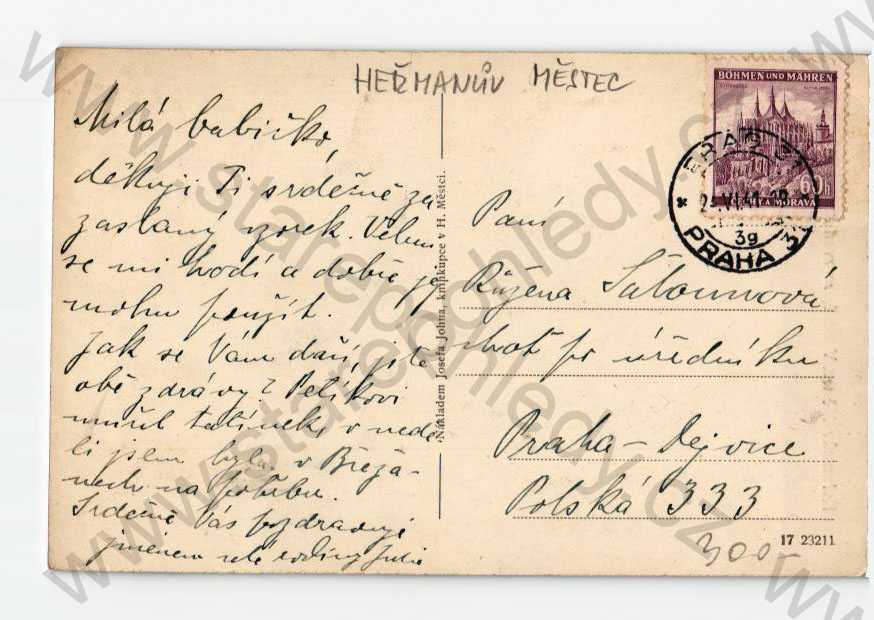 HEŘMANŮV MĚSTEC
Milá babičko,
děkuji Ti srdečně za
zaslaný vzorek. Velmi
se mi hodí a dobře jej
mohu použít.
Jak se Vám daří, jste
obě zdrávy? Petříkovi
umřel tatínek, v nedě-
li jsem byla v Břeža-
nech na pohřbu.
Srdečně Vás pozdravuje
jménem celé rodiny Julie
Nákladem Josefa Johna, knihkupce v H. Městci.
BÖHMEN UND MÄHREN
60h
ČECHY A MORAVA
PRAG 31
39
PRAHA 31
Paní
Růžena
choť po úředníku
Praha-Dejvice
Polská 333
17 23211
300-
www.starepohledy.cz